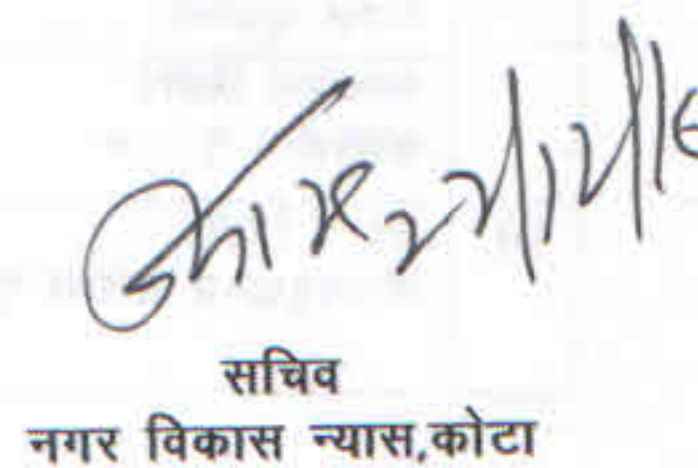 सचिव
नगर विकास न्यास,कोटा